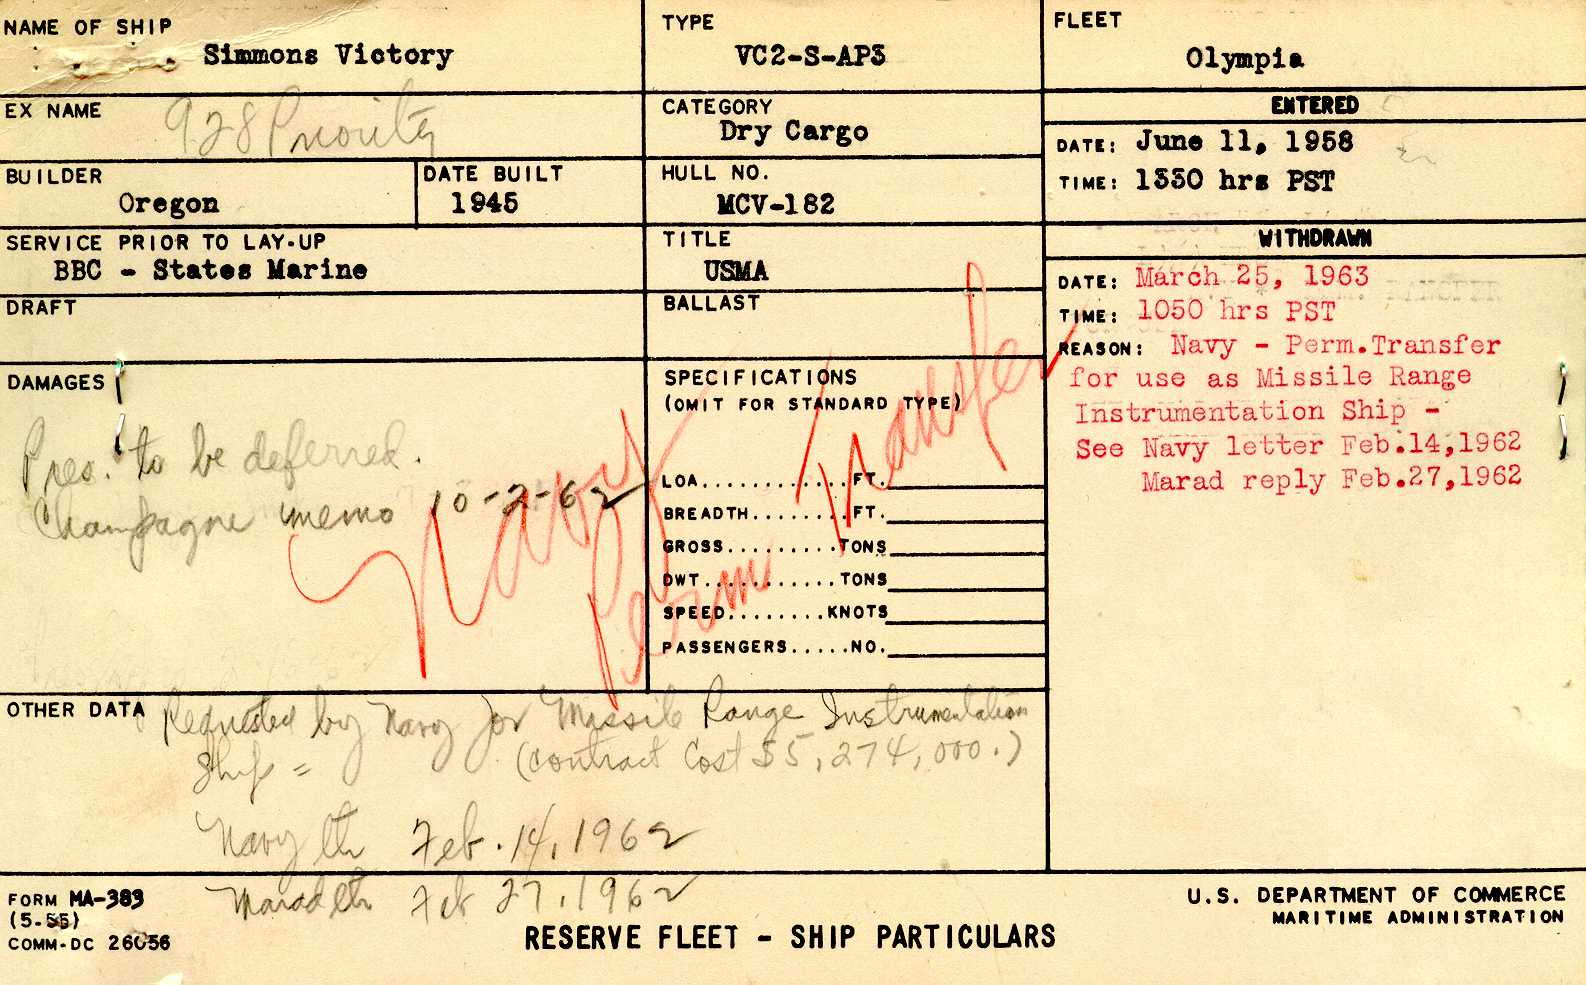 NAME OF SHIP
Simmons Victory
TYPE
VC2-S-AP3
FLEET
Olympia
EX NAME
928 Priority
CATEGORY
Dry Cargo
ENTERED
DATE: June 11, 1958
TIME: 1330 hrs PST
BUILDER
Oregon
DATE BUILT
1945
HULL NO.
MCV-182
SERVICE PRIOR TO LAY-UP
BBC - States Marine
TITLE
USMA
WITHDRAWN
DATE: March 25, 1963
TIME: 1050 hrs PST
REASON: Navy - Perm.Transfer
for use as Missile Range
Instrumentation Ship -
See Navy letter Feb.14,1962
Marad reply Feb.27,1962
DRAFT
BALLAST
DAMAGES
Pres. to be deferred.
Champagne memo 10-2-62
Navy
Perm Transfer
SPECIFICATIONS
(OMIT FOR STANDARD TYPE)
LOA............FT.
BREADTH........FT.
GROSS.........TONS
DWT...........TONS
SPEED........KNOTS
PASSENGERS.....NO.
OTHER DATA
Requested by Navy for Missile Range Instrumentation
Ship = (contract cost $5,274,000.)
Navy ltr Feb. 14, 1962
Marad ltr Feb 27, 1962
FORM MA-383
(5-55)
COMM-DC 26056
RESERVE FLEET - SHIP PARTICULARS
U.S. DEPARTMENT OF COMMERCE
MARITIME ADMINISTRATION